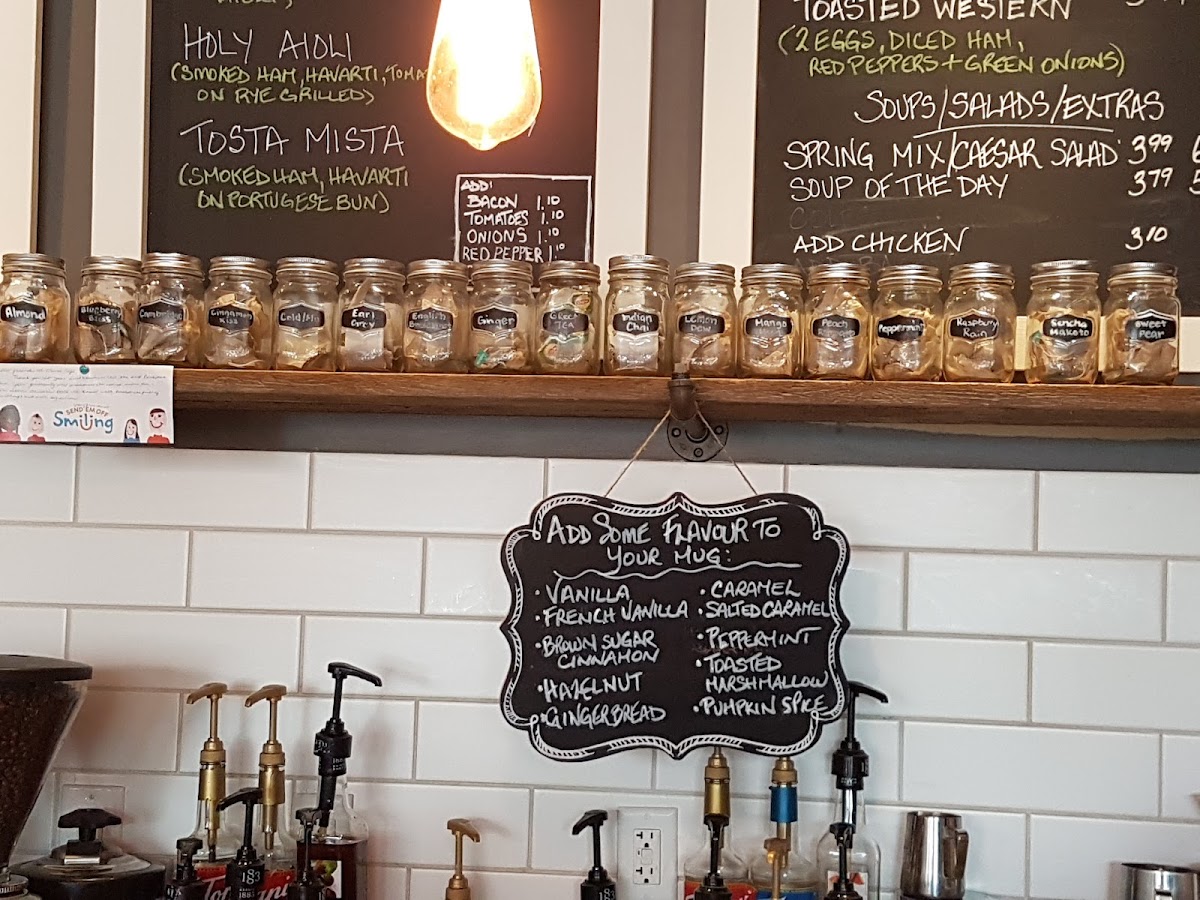 HOLY AIOLI
(SMOKED HAM, HAVARTI, TOMA
ON RYE GRILLED)
TOSTA MISTA
(SMOKED HAM, HAVARTI
ON PORTUGESE BUN)
ADD:
BACON 1.10
TOMATOES 1.10
ONIONS 1.10
RED PEPPER 1.10
TOASTED WESTERN
(2 EGGS, DICED HAM,
RED PEPPERS + GREEN ONIONS)
SOUPS/SALADS/EXTRAS
SPRING MIX/CAESAR SALAD 3.99
SOUP OF THE DAY 3.79
ADD CHICKEN 3.10
Almond
Blueberry
Bliss
Cambridge
Cinnamon
Kiss
Cold/Flu
Earl
Grey
English
Breakfast
Ginger
Green
TEA
Indian
Chai
Lemon
Dew
Mango
Peach
Peppermint
Raspberry
Rain
Sencha
Makoto
Sweet
Pear
SEND 'EM OFF
Smiling
ADD SOME FLAVOUR TO
YOUR MUG:
• VANILLA
• FRENCH VANILLA
• BROWN SUGAR
CINNAMON
• HAZELNUT
• GINGERBREAD
• CARAMEL
• SALTED CARAMEL
• PEPPERMINT
• TOASTED
MARSHMALLOW
• PUMPKIN SPICE
Torani